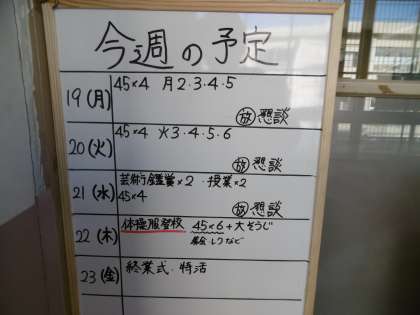 今週の予定
19(月) 45×4 月2・3・4・5
放 懇談
20(火) 45×4 火3・4・5・6
放 懇談
21(水) 芸術鑑賞×2 ・授業×2
45×4
放 懇談
22(木) 体操服登校 45×6+大そうじ
集会 レクなど
23(金) 終業式・特活